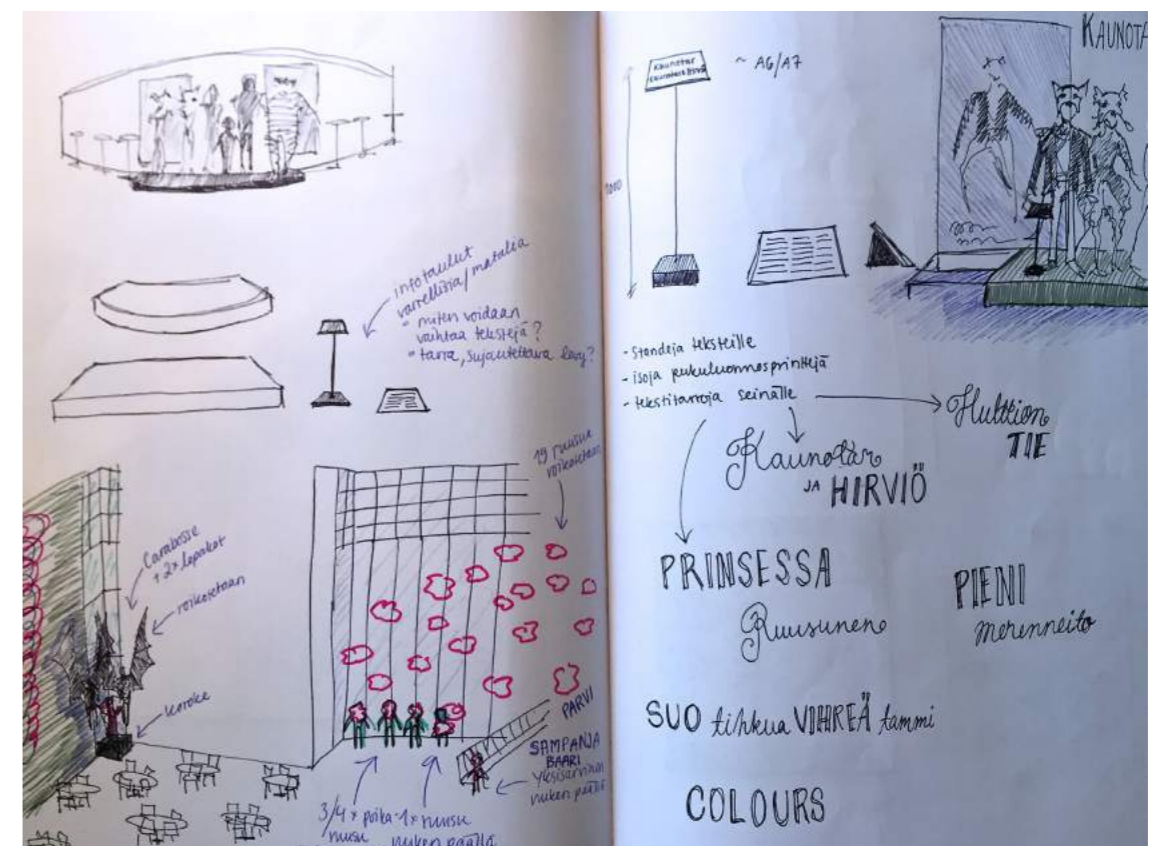 infotaulut
varrellisia/matalia
• miten voidaan
vaihtaa tekstejä?
• tarra, sujautettava levy?
Carabosse
+ 2x lepakot
roikosetaan
koroke
19 ruusua
roikosetaan
PARVI
SAMPANJA
BAARI
Yksisarvinen
nuken päällä
3/4 x poika
ruusu
1x ruusu
nuken päällä
Kaunotar
~ A6/A7
1000
KAUNOTA
- Standeja teksteille
- isoja pukuluonnosprinttejä
- tekstitarroja seinälle
Hulttion
TIE
Kaunotar
JA HIRVIÖ
PRINSESSA
Ruusunen
PIENI
merenneito
SUO tihkua VIHREÄ tammi
COLOURS